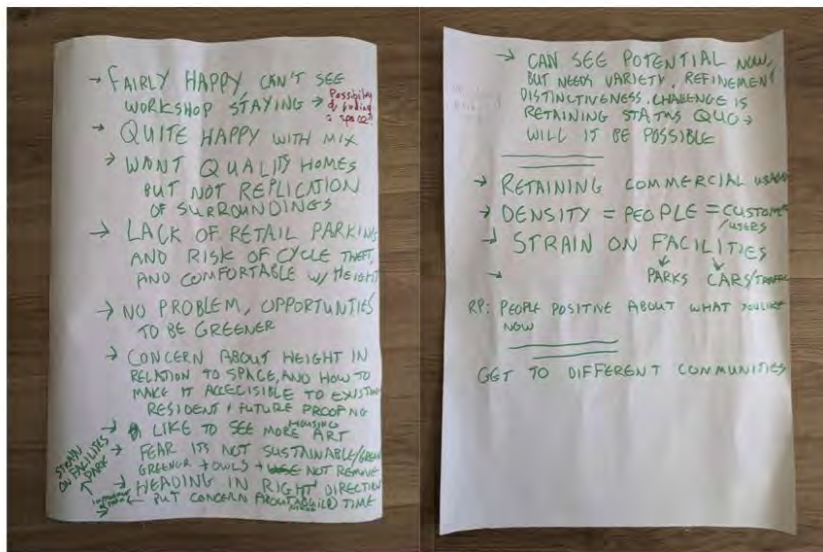 → FAIRLY HAPPY, CAN'T SEE
WORKSHOP STAYING → Possibility
of finding
a space?
→ QUITE HAPPY WITH MIX
→ WANT QUALITY HOMES
BUT NOT REPLICATION
OF SURROUNDINGS
→ LACK OF RETAIL PARKING
AND RISK OF CYCLE THEFT,
AND COMFORTABLE W/ HEIGHT
→ NO PROBLEM, OPPORTUNTIES
TO BE GREENER
→ CONCERN ABOUT HEIGHT IN
RELATION TO SPACE, AND HOW TO
MAKE IT ACCECISIBLE TO EXISTING
RESIDENT + FUTURE PROOFING
→ LIKE TO SEE MORE HOUSING ART
→ FEAR ITS NOT SUSTAINABLE/GREEN
GREENER + OWLS + USE NOT REMOVE
STRAIN
ON FACILITIES
PARK
→ HEADING IN RIGHT DIRECTION
BUT CONCERN ABOUT BUILD TIME
→ CAN SEE POTENTIAL NOW,
BUT NEEDS VARIETY, REFINEMENT
DISTINCTIVENESS. CHALLENGE IS
RETAINING STATUS QUO →
WILL IT BE POSSIBLE
→ RETAINING COMMERCIAL USAGE
→ DENSITY = PEOPLE = CUSTOMERS
/USERS
→ STRAIN ON FACILITIES
→ PARKS CARS/TRAFFIC
RP: PEOPLE POSITIVE ABOUT WHAT YOU LIKE
NOW
GET TO DIFFERENT COMMUNITIES